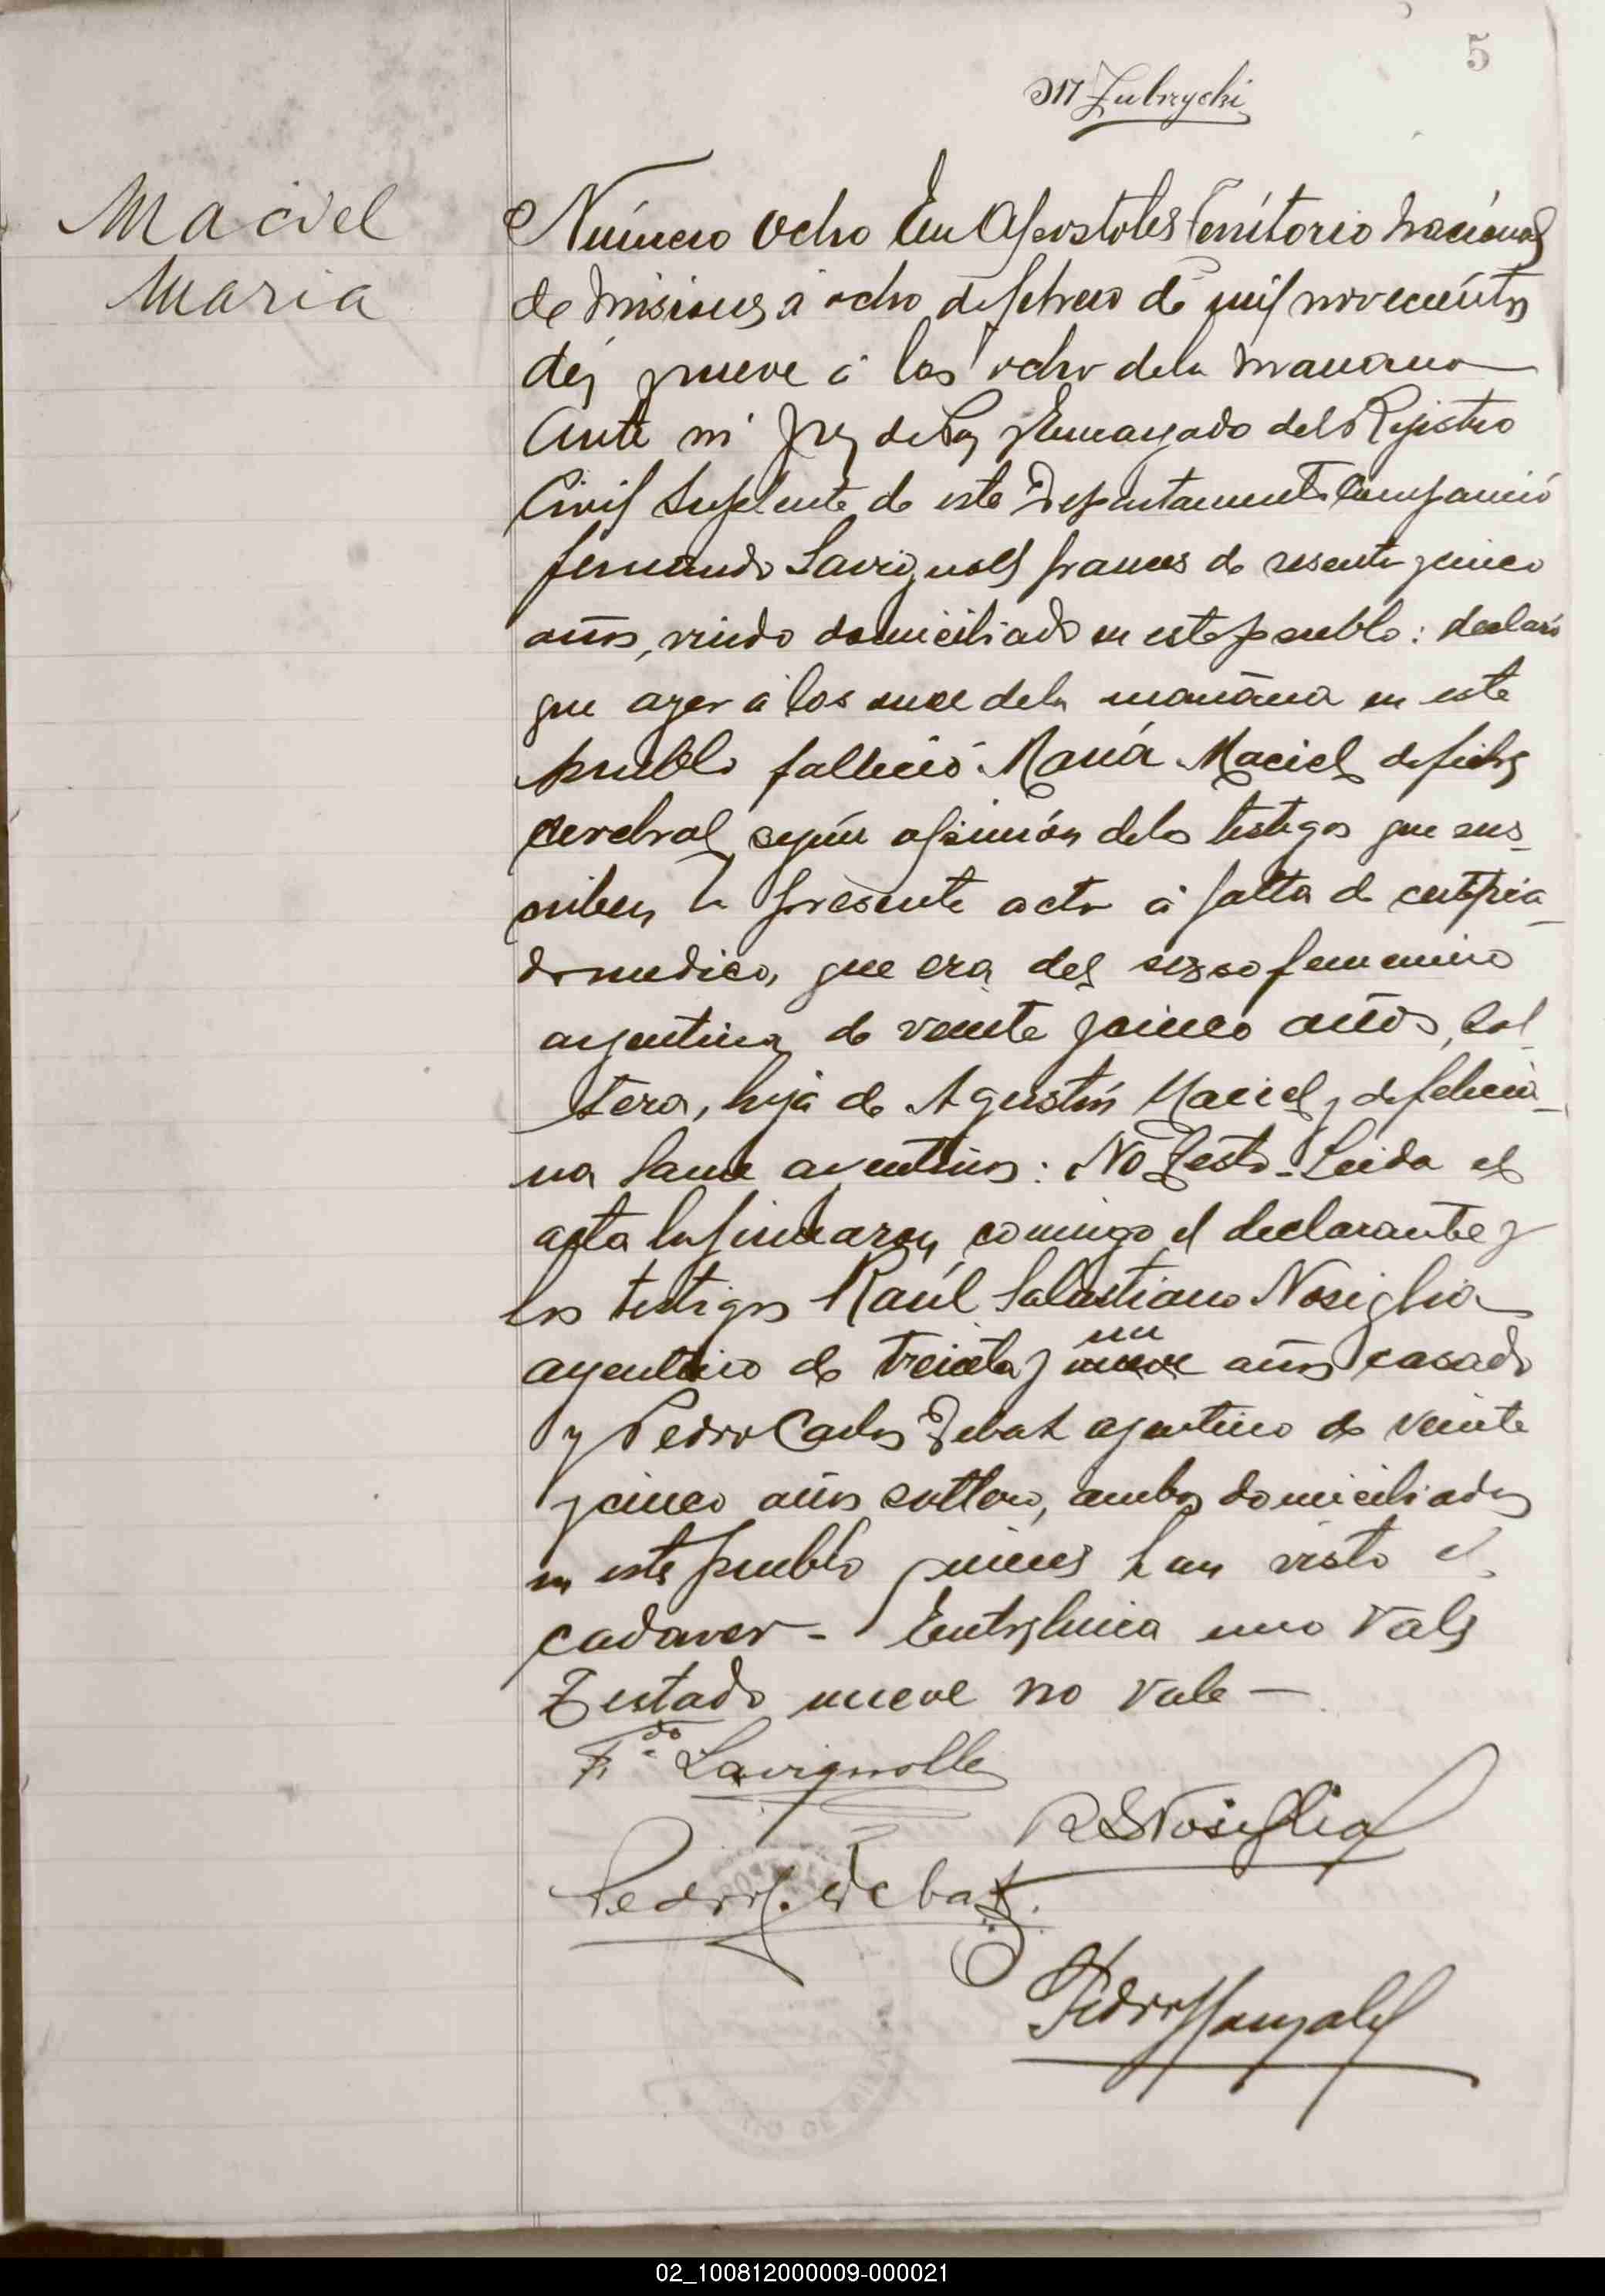 5
M Zubrzycki
Maciel
Maria
Número ocho En Apostoles Territorio Nacional
de Misiones á ocho de febrero de mil novecientos
diez y nueve á las ocho de la manana
Ante mi Juez de Paz y Encargado del Registro
Civil Suplente de este Departamento Compareció
Fernando Lavignolle frances de sesenta y cinco
años, viudo domiciliado en este pueblo: declaró
que ayer á las once de la mañana en este
pueblo falleció María Maciel de fiebre
cerebral según opinión de los testigos que sus-
criben la presente acta á falta de certifica-
do medico, que era del sexso femenino
argentina de veinte y cinco años, sol-
tera, hija de Agustín Maciel y de Felicia-
na argentinos: No Testo - Leida el
acta la firmaron conmigo el declarante y
los testigos Raúl Salustiano Nosiglia
argentino de treinta y un nueve años casado
y Pedro Carlos Debat argentino de veinte
y cinco años soltero, ambos domiciliados
en este pueblo quienes han visto el
cadaver - Entrelinea uno Vale
Testado nueve no vale —
Fdo Lavignolle
R S Nosiglia
Pedro C. Debat
Pedro Gonzalez
02_100812000009-000021